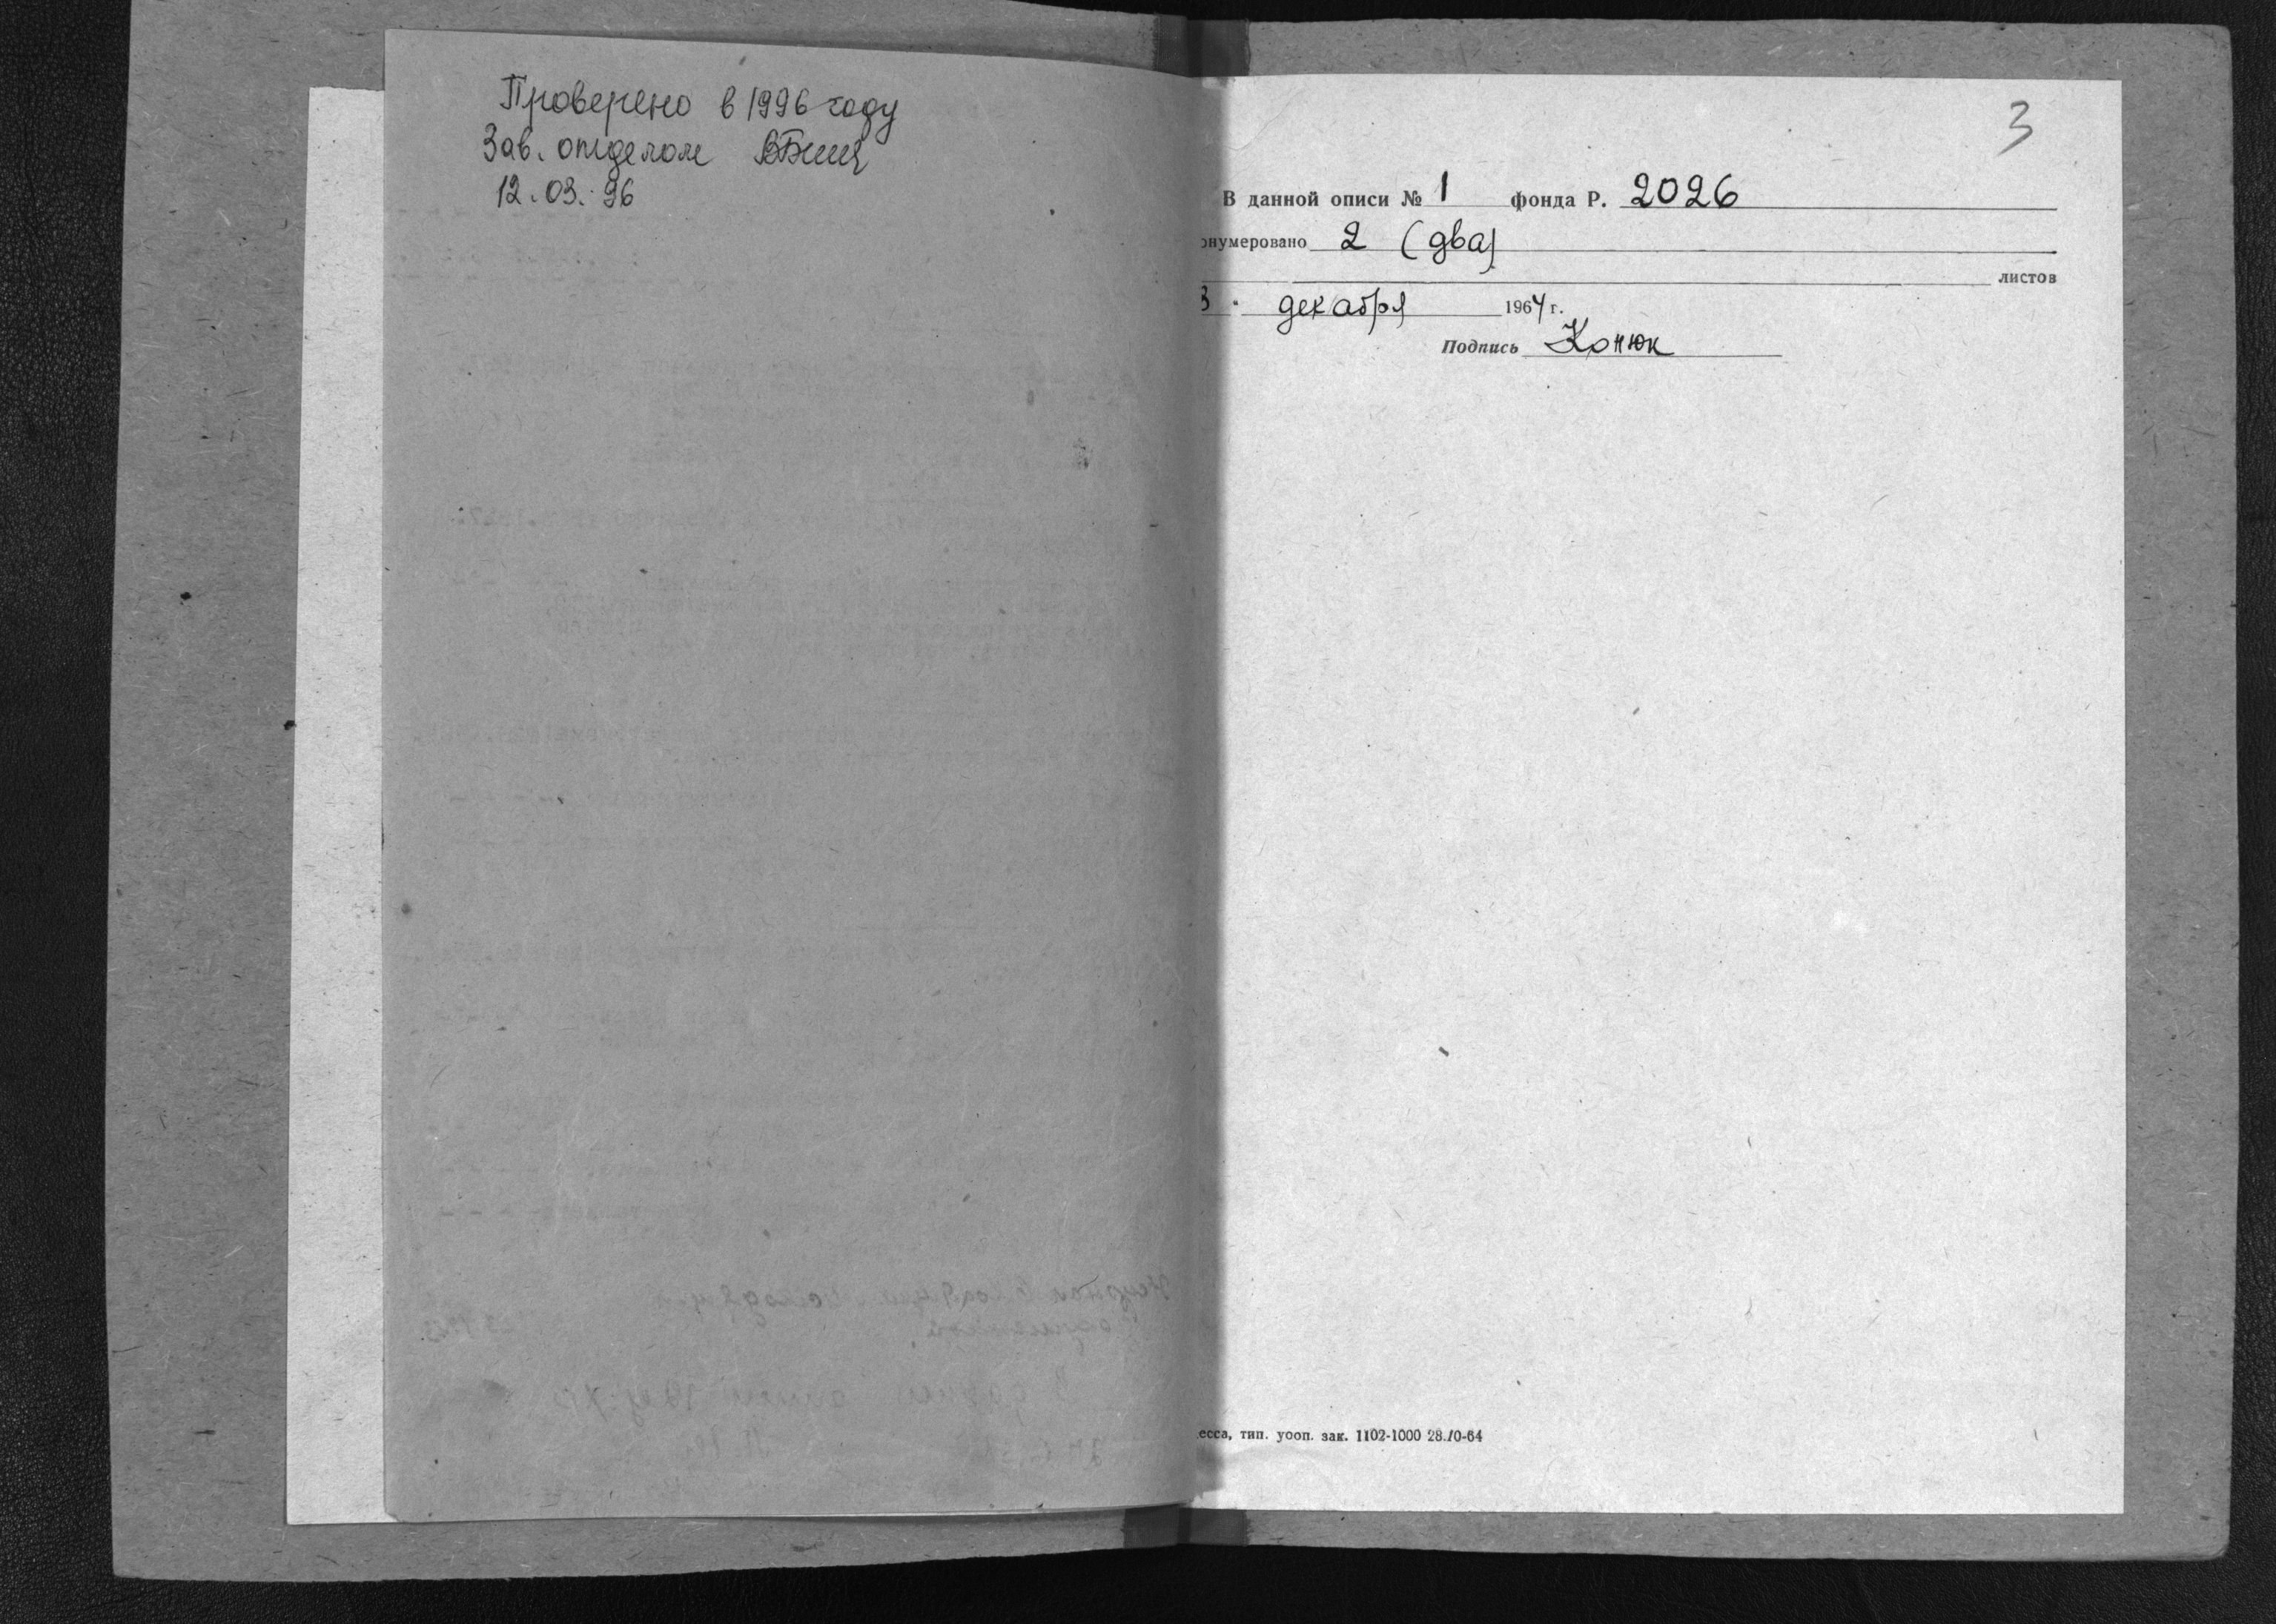 Проверено в 1996 году
Зав. отделом
12.03.96
3
В данной описи № 1 фонда Р. 2026
онумеровано 2 (два)
листов
3 " декабря 1964 г.
Подпись Конюк
есса, тип. уооп. зак. 1102-1000 28.10-64